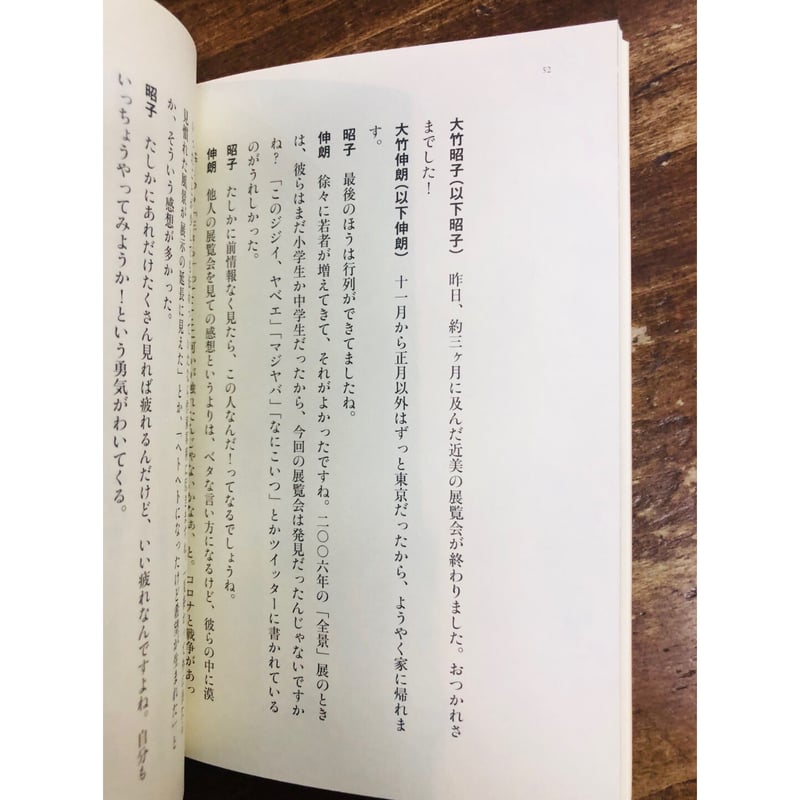 52
大竹昭子(以下昭子) 昨日、約三ヶ月に及んだ近美の展覧会が終わりました。おつかれさ
までした!
大竹伸朗(以下伸朗) 十一月から正月以外はずっと東京だったから、ようやく家に帰れま
す。
昭子 最後のほうは行列ができてましたね。
伸朗 徐々に若者が増えてきて、それがよかったですね。二〇〇六年の「全景」展のとき
は、彼らはまだ小学生か中学生だったから、今回の展覧会は発見だったんじゃないですか
ね?「このジジイ、ヤベエ」「マジヤバ」「なにこいつ」とかツイッターに書かれている
のがうれしかった。
昭子 たしかに前情報なく見たら、この人なんだ!ってなるでしょうね。
伸朗 他人の展覧会を見ての感想というよりは、ベタな言い方になるけど、彼らの中に漠
かが触れたんじゃないかなあ、と。コロナと戦争があっ
見慣れた風景が展示の延長に見えた」とか、「ヘトヘトになったけど希望が生まれた」と
か、そういう感想が多かった。
昭子 たしかにあれだけたくさん見れば疲れるんだけど、いい疲れなんですよね。自分も
いっちょうやってみようか!という勇気がわいてくる。